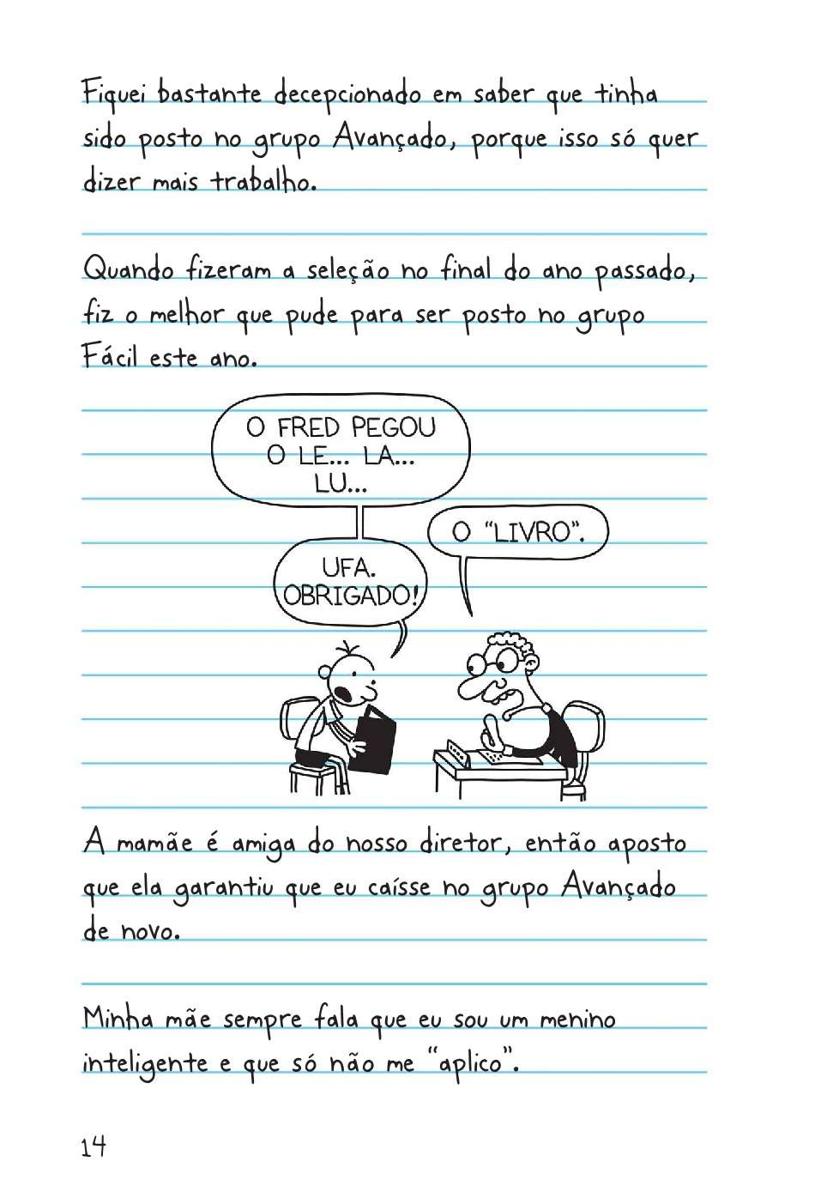 Fiquei bastante decepcionado em saber que tinha
sido posto no grupo Avançado, porque isso só quer
dizer mais trabalho.
Quando fizeram a seleção no final do ano passado,
fiz o melhor que pude para ser posto no grupo
Fácil este ano.
O FRED PEGOU
O LE... LA...
LU...
O "LIVRO".
UFA.
OBRIGADO!
A mamãe é amiga do nosso diretor, então aposto
que ela garantiu que eu caísse no grupo Avançado
de novo.
Minha mãe sempre fala que eu sou um menino
inteligente e que só não me "aplico".
14